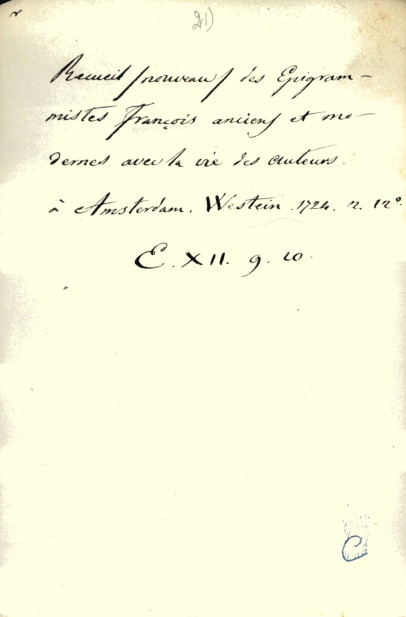 21)
Recueil (nouveau) des Epigram-
mistes François anciens et mo-
dernes avec la vie des auteurs.
à Amsterdam. Westein. 1724. 2. 12°.
E. XII. 9. 10.
C